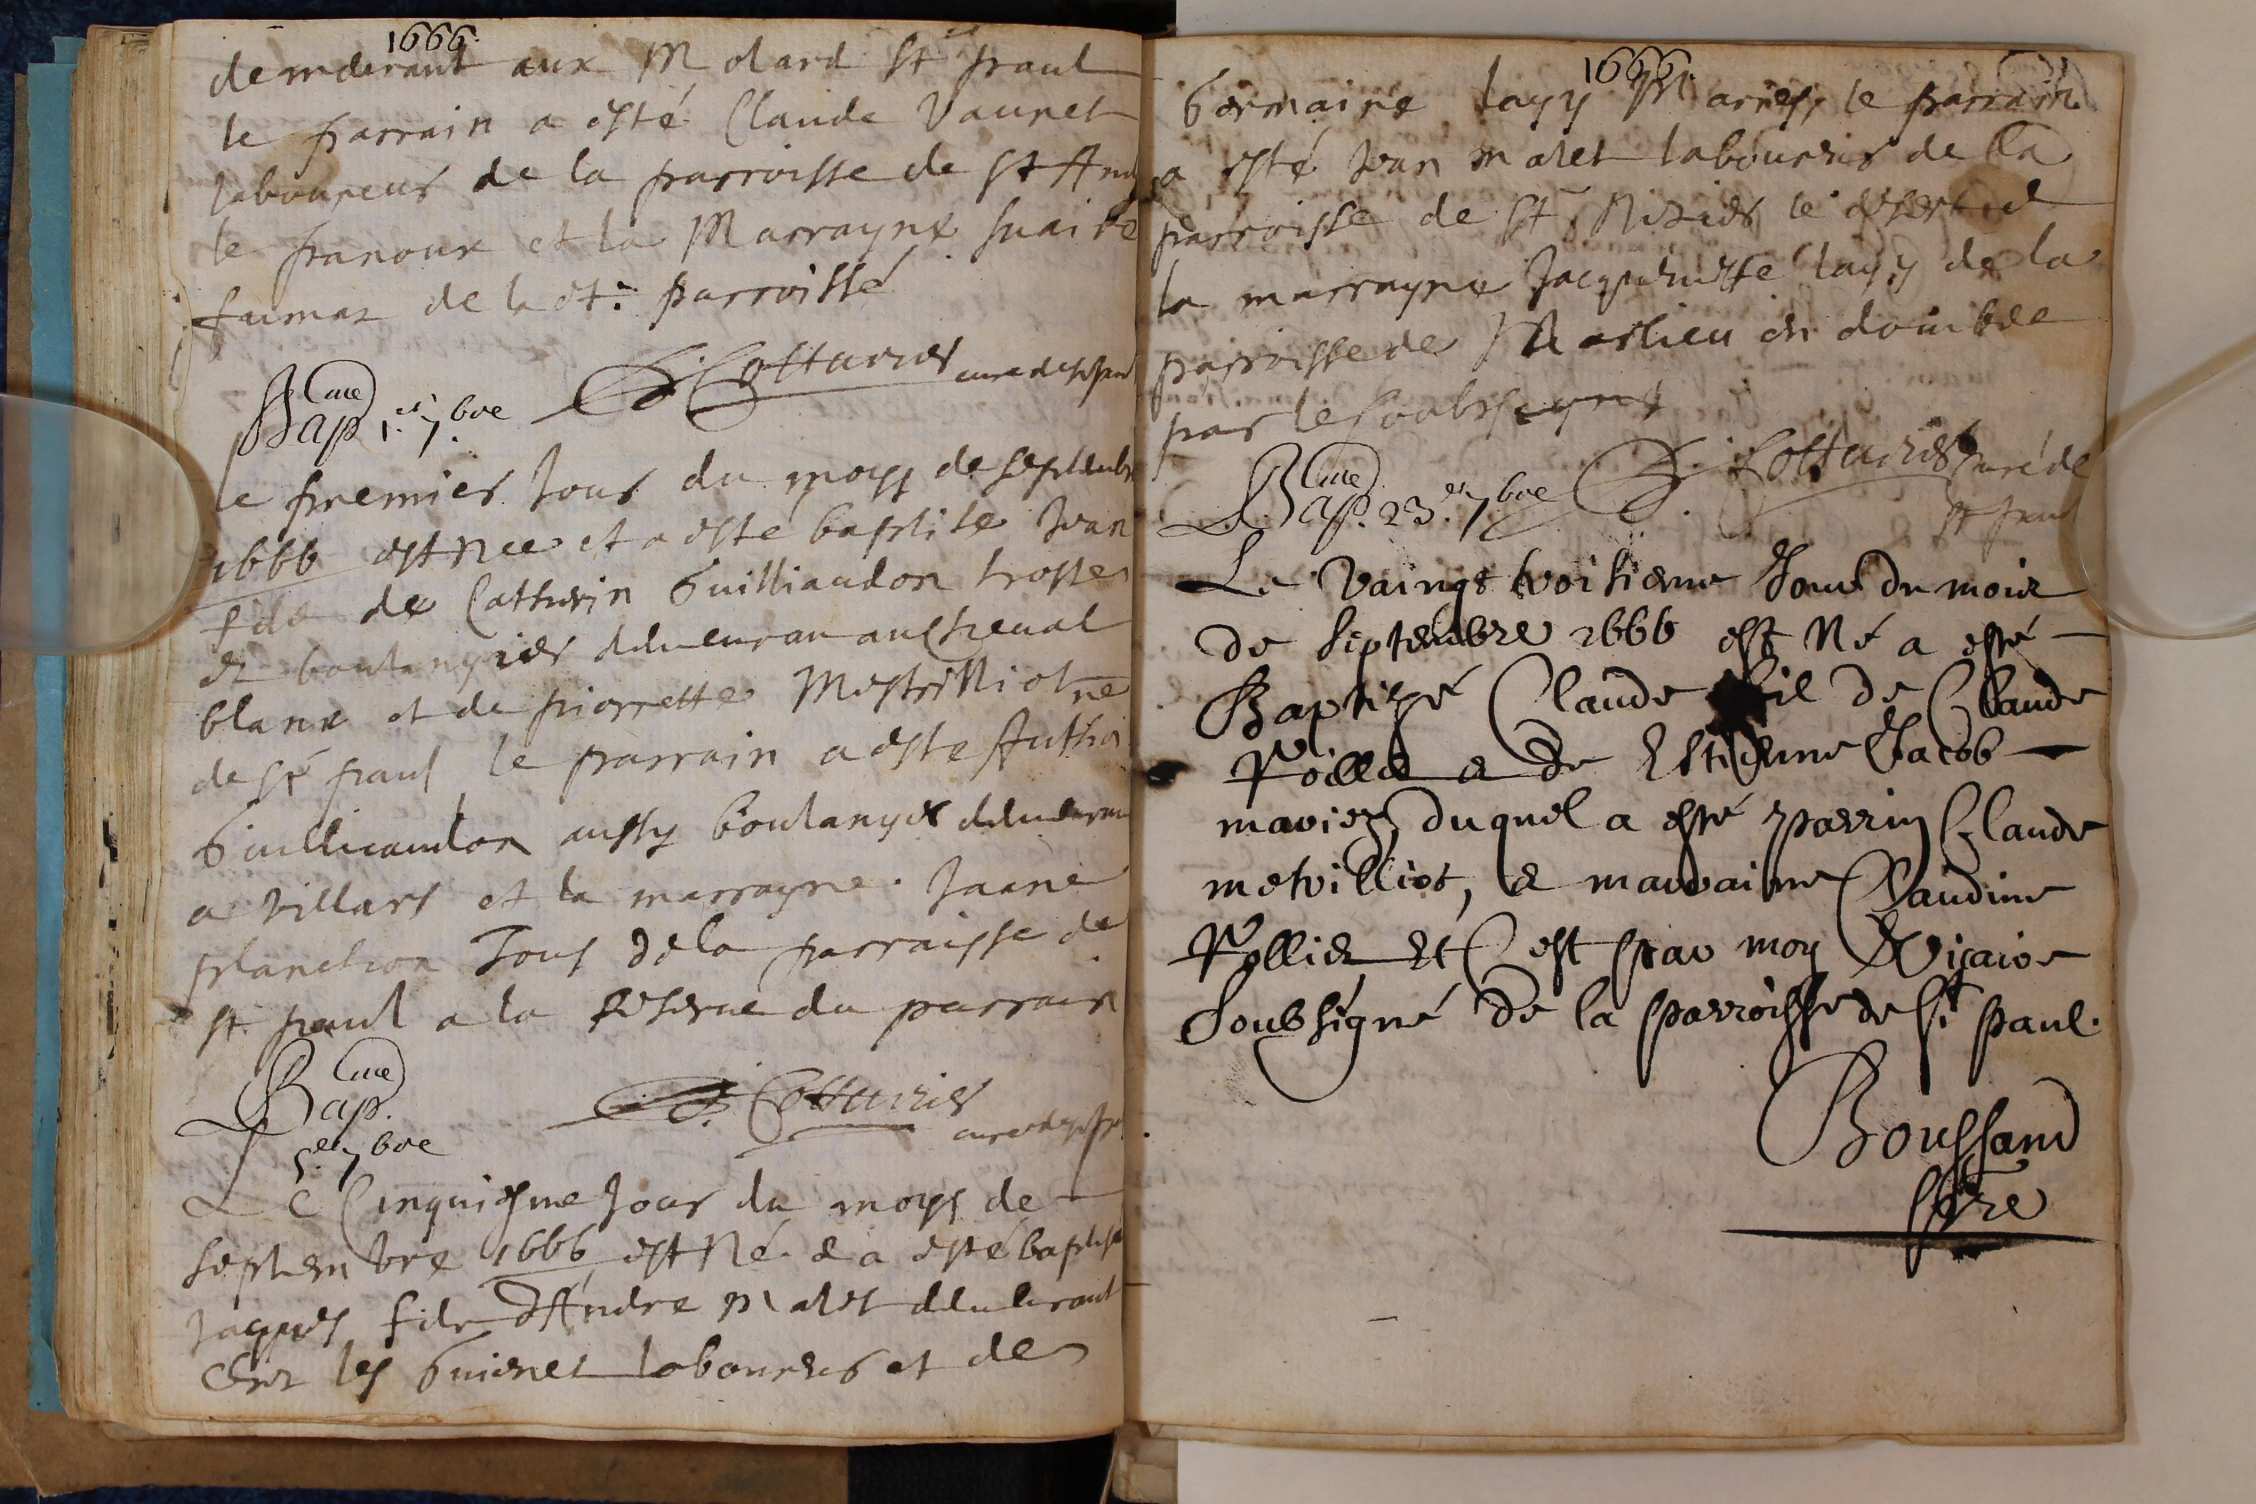 1666.
demeurant aux Molard St paul
le parrain a esté Claude Vaunet
laboureur de la parroisse de St And
le panoux et la Marrayne
de la dte parroisse
Cotturier curé de St paul
Bapme 1er 7bre
le premier Jour du moys de septembre
1666 est Nee et a esté baptise Jean
fils de Catherin Guilliaudon
et boulangier demeuran au cheval
blanx et de pierrette Mestrilliot
de St paul le parrain a este Antho
Guilliaudon aussy boulangé demeurant
a villars et la marrayne. Jaane
planchon Tous de la parroisse de
St. paul a la Reserve du parrain
Cotturier
Bapme
5er 7bre
Le Cinquiesme Jour du moys de
septembre 1666 est Né. & a esté baptisé
Jaques fils d'André Malet demeurant
Chez les Guienet laboureur et de
1666.
Germaine layy Mariés, le parrain
a esté Jean malet laboureur de la
parroisse de St Nisier le desert et
la marrayne Jacquemette layy de la
parroisse de Marlieu en dombe
par le soubsigné
Cotturier Curé de
St paul
Bapme 23er 7bre
Le Vaingt troisieme Jour du mois
de Septembre 1666 est Né a esté
Baptizé Claude fil de Claude
Rollie & de Estienne Jacob
mariez, duquel a esté parrin Claude
metrilliot, & marraine Claudine
Rollier Et C est par moy Vicaire
Soubsigné de la parroisse de St paul.
Boussand
ptre